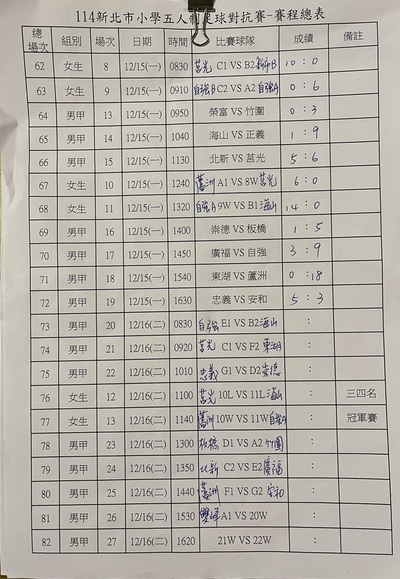 114新北市小學五人制足球對抗賽-賽程總表
總場次 組別 場次 日期 時間 比賽球隊 成績 備註
62 女生 8 12/15(一) 0830 莒光 C1 VS B2 B 10 : 0
63 女生 9 12/15(一) 0910 自強B C2 VS A2 自強A 0 : 6
64 男甲 13 12/15(一) 0950 榮富 VS 竹圍 0 : 3
65 男甲 14 12/15(一) 1040 海山 VS 正義 1 : 9
66 男甲 15 12/15(一) 1130 北新 VS 莒光 5 : 6
67 女生 10 12/15(一) 1240 蘆洲 A1 VS 8W 莒光 6 : 0
68 女生 11 12/15(一) 1320 自強A 9W VS B1 海山 14 : 0
69 男甲 16 12/15(一) 1400 崇德 VS 板橋 1 : 5
70 男甲 17 12/15(一) 1450 廣福 VS 自強 3 : 9
71 男甲 18 12/15(一) 1540 東湖 VS 蘆洲 0 : 18
72 男甲 19 12/15(一) 1630 忠義 VS 安和 5 : 3
73 男甲 20 12/16(二) 0830 自強 E1 VS B2 海山 :
74 男甲 21 12/16(二) 0920 莒光 C1 VS F2 東湖 :
75 男甲 22 12/16(二) 1010 忠義 G1 VS D2 崇德 :
76 女生 12 12/16(二) 1100 莒光 10L VS 11L 海山 : 三四名
77 女生 13 12/16(二) 1140 蘆洲 10W VS 11W 自強A : 冠軍賽
78 男甲 23 12/16(二) 1300 板橋 D1 VS A2 竹圍 :
79 男甲 24 12/16(二) 1350 北新 C2 VS E2 廣福 :
80 男甲 25 12/16(二) 1440 蘆洲 F1 VS G2 安和 :
81 男甲 26 12/16(二) 1530 A1 VS 20W :
82 男甲 27 12/16(二) 1620 21W VS 22W :